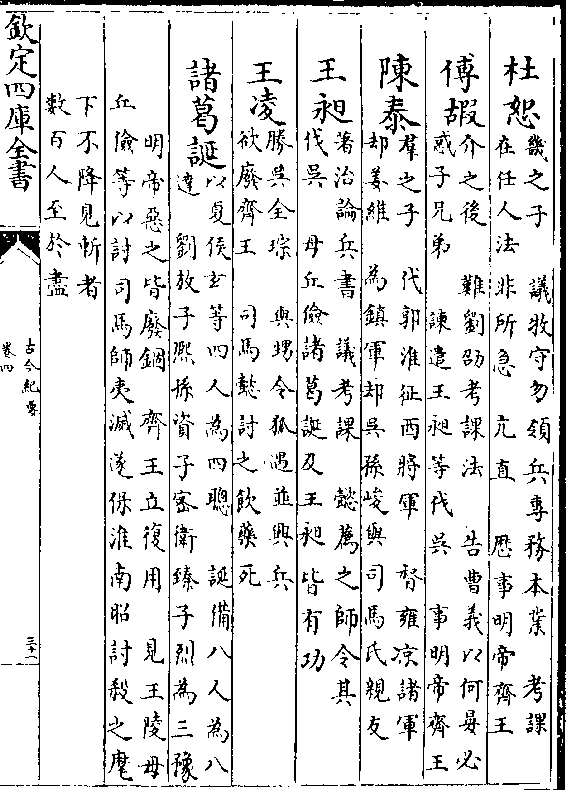 杜恕幾之子 議牧守勿領兵專務本業 考課
在任人法非所急 亢直 歷事明帝齊王
傅嘏介之後 難劉劭考課法 告曹義以何晏必
惑子兄弟 諫遣王昶等伐吳 事明帝齊王
陳泰羣之子 代郭淮征西將軍 督雍凉諸軍
却姜維 為鎮軍却吳孫峻與司馬氏親友
王昶著治論兵書 議考課 懿薦之師令其
伐吳 毋丘儉諸葛誕及王昶皆有功
王凌勝吳全琮 與甥令狐遇並興兵
欲廢齊王 司馬懿討之飲藥死
諸葛誕以夏侯玄等四人為四聰 誕備八人為八
達 劉放子熙孫資子密衛臻子烈為三豫
明帝惡之皆廢錮 齊王立復用 見王陵毋
丘儉等以討司馬師夷滅遂保淮南昭討殺之麾
下不降見斬者
數百人至於盡
欽定四庫全書
古今紀要
卷四
三十一